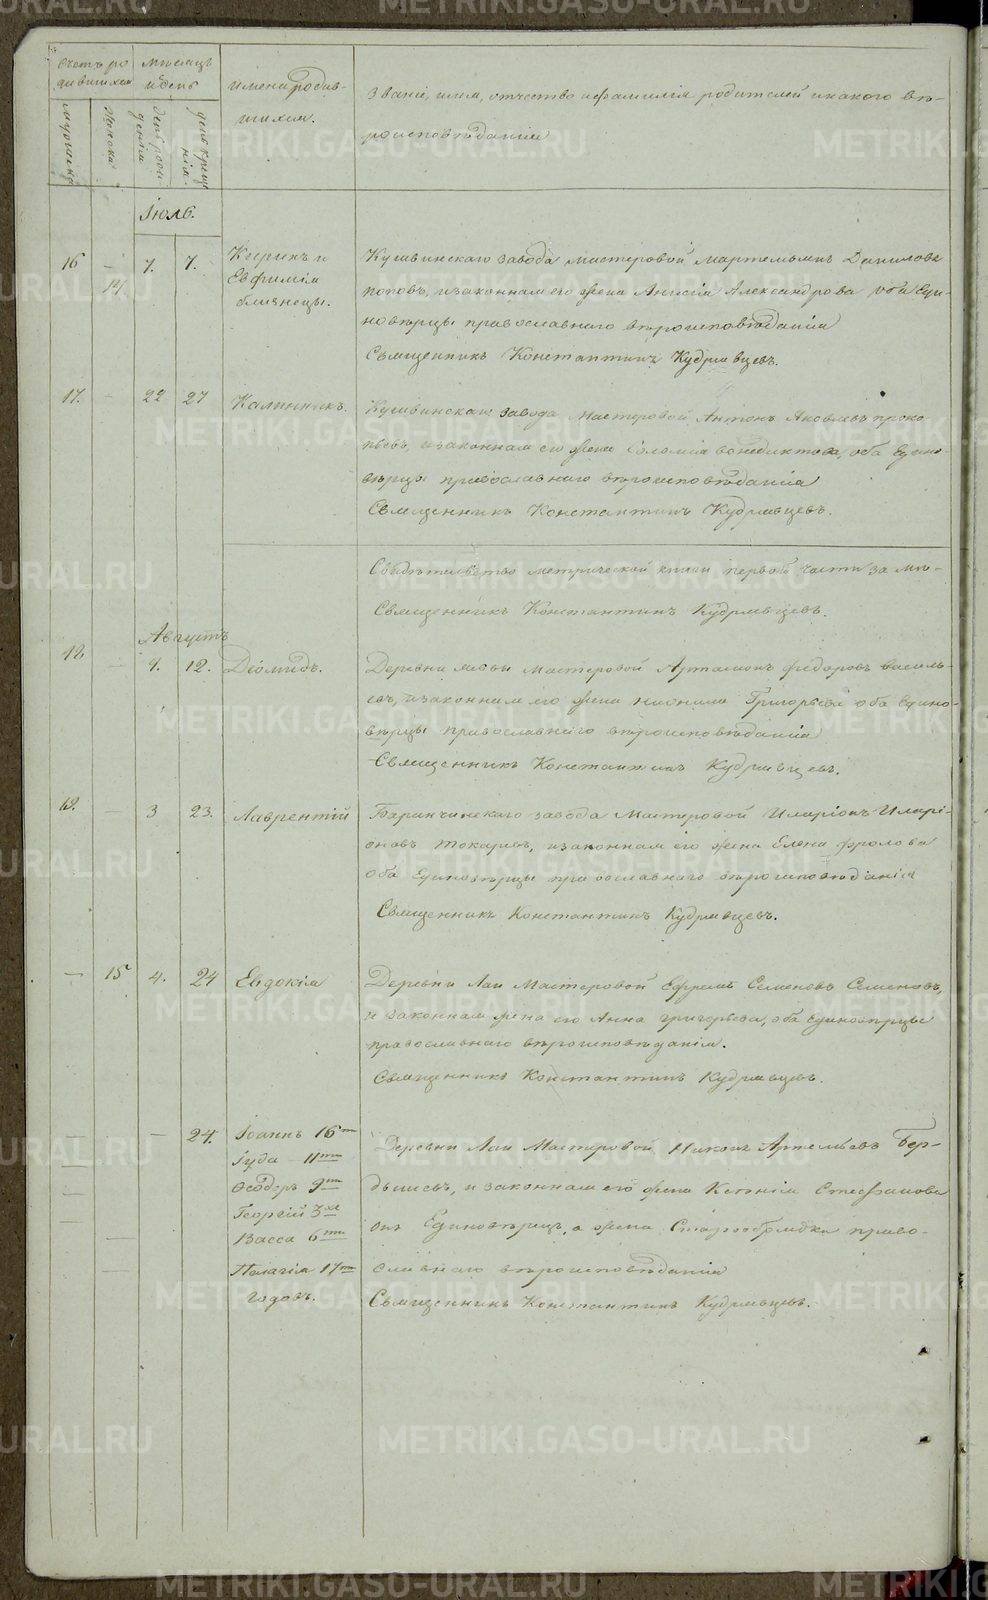 Счетъ ро
дившихся
Мѣсяцъ
и день
имена родив-
шихся.
Званіе, имя, отчество и фамилія родителей и какого вѣ-
роисповѣданія
мужеска
женска
день рож
денія
день креще
нія.
Іюль.
16 — 7. 7. Кирикъ и
14 Евфимія
близнецы.
Кушвинскаго завода мастеровой Мартемьянъ Даниловъ
Поповъ, и законная его жена Анисія Александрова оба Еди-
новѣрцы православнаго вѣроисповѣданія
Священникъ Константинъ Кудрявцевъ.
17. — 22 27 Калинникъ.
Кушвинскаго завода Мастеровой Антонъ Яковлевъ Проко-
пьевъ, и законная его жена Соломія Венедиктова, оба Едино-
вѣрцы православнаго вѣроисповѣданія
Священникъ Константинъ Кудрявцевъ.
метрической книги первой части за
Священникъ Константинъ Кудрявцевъ.
Августъ
18 — 9. 12. Діомидъ.
Деревни Мастеровой Артамонъ Федоровъ Василь-
евъ, и законная его жена Григорьева оба Едино-
вѣрцы православнаго вѣроисповѣданія
Священникъ Константинъ Кудрявцевъ.
19. — 3 23. Лаврентій
Баранчинскаго завода Мастеровой Иларіонъ Иларі-
оновъ Токаревъ, и законная его жена Елена Фролова
оба Единовѣрцы православнаго вѣроисповѣданія
Священникъ Константинъ Кудрявцевъ.
— 15 4. 24 Евдокія
Деревни Лаи Мастеровой Ефремъ Семеновъ Семеновъ,
и законная жена его Анна Григорьева, оба Единовѣрцы
православнаго вѣроисповѣданія.
Священникъ Константинъ Кудрявцевъ.
— — 24. Іоаннъ 16ти
Іуда 11ти
Ѳеодоръ 9ти
Георгій 3хъ
Васса 6ти
Пелагія 17ти
годовъ.
Деревни Лаи Мастеровой Никонъ Артемьевъ Бер-
дышевъ, и законная его жена Ксенія Стефанова
онъ Единовѣрецъ, а жена Старообрядка право-
славнаго вѣроисповѣданія
Священникъ Константинъ Кудрявцевъ.
METRIKI.GASO-URAL.RU